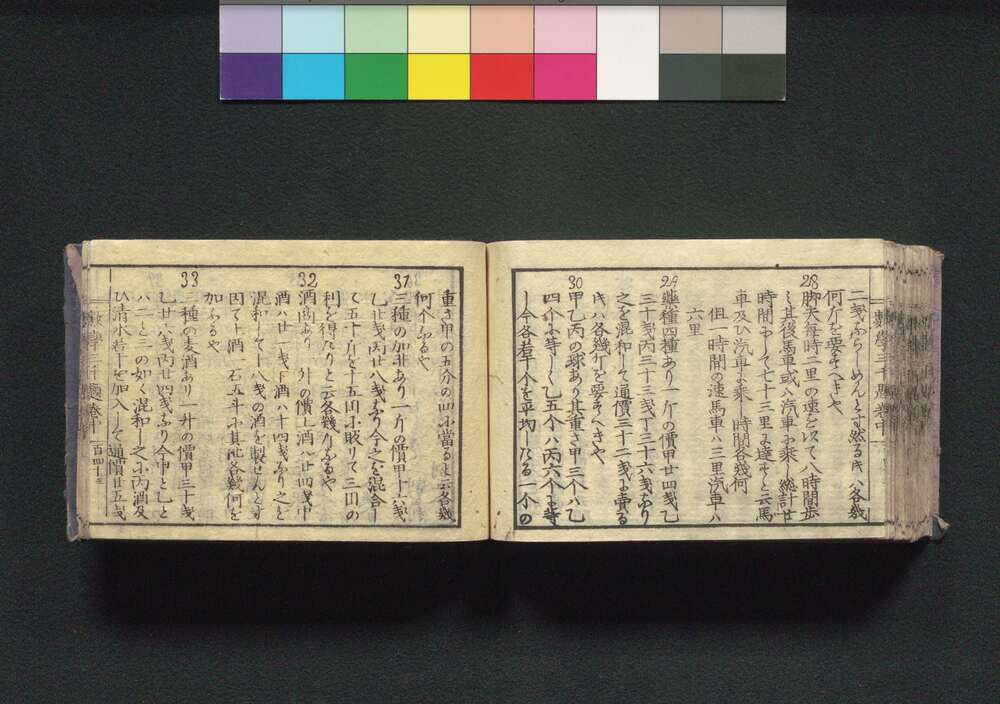 二ｾﾝならしめんとす然るﾄｷハ各幾
何斤を要すへきや
28
脚夫毎時二里の速を以て八時間歩
し其後馬車或ハ汽車に乗し総計廿
時間にして七十三里に達すと云馬
車及ひ汽車に乗し時間各幾何
但一時間の速馬車ハ三里汽車ハ
六里
29
薬種四種あり一斤の價甲廿四戔乙
三十戔丙三十三戔丁三十六戔なり
之を混和して通價三十二戔に賣る
ﾄｷハ各幾斤を要すへきや
30
甲乙丙の球あり其重さ甲三个ハ乙
四个に等しく乙五个ハ丙六个に等
し今各若干个を平均したる一个の
重さ甲の五分の四に當ると云各幾
何个なるや
31
三種の加非あり一斤の價甲十六戔
乙廿戔丙廿八戔なり今之を混合し
て五十斤とし五円に販りて三円の
利を得たりと云各幾斤なるや
32
酒商あり一升の價上酒ハ廿四戔中
酒ハ廿一戔下酒ハ十四戔なり之を
混和して十八戔の酒を製せんとす
因て下酒一石五斗に其他各幾何を
加ふるや
33
三種の麦酒あり一升の價甲三十戔
乙廿六戔丙廿四戔なり今甲と乙と
ハ二と三の如く混和し之に丙酒及
ひ清水若干を加入して通價廿五戔
數學三千題卷中
百四十三